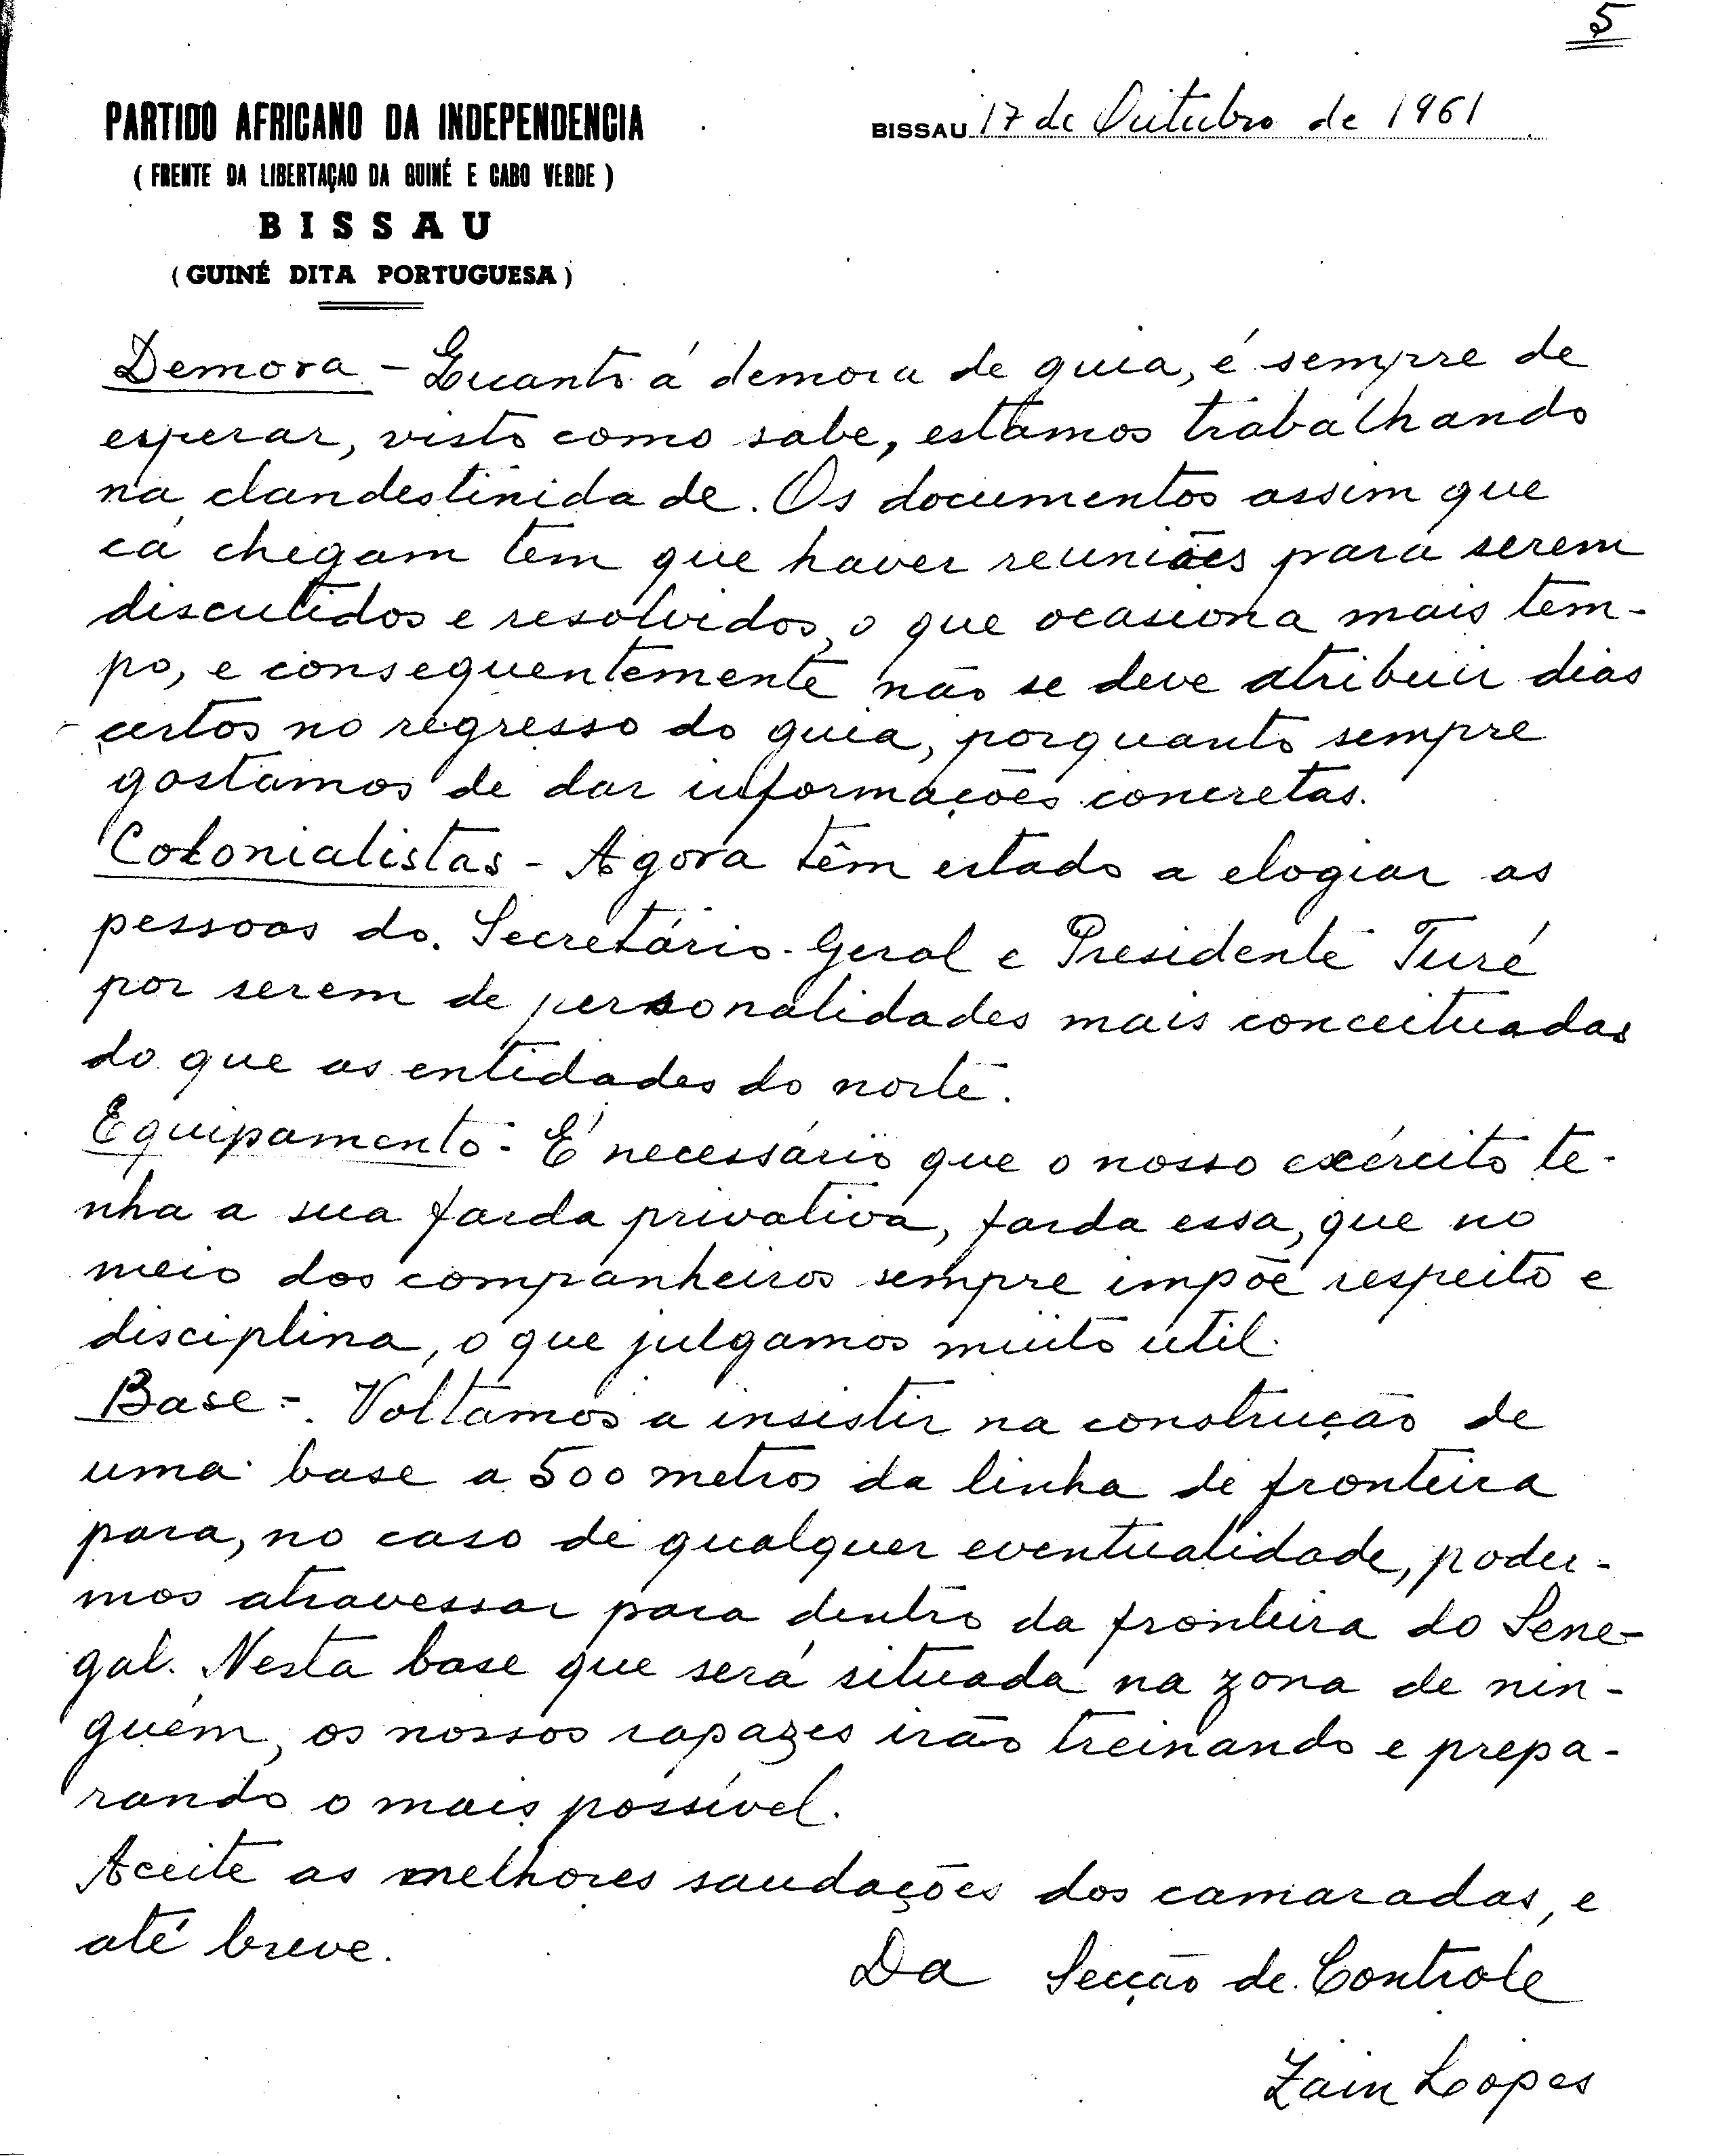 5
PARTIDO AFRICANO DA INDEPENDENCIA
( FRENTE DA LIBERTAÇAO DA GUINÉ E CABO VERDE )
BISSAU
(GUINÉ DITA PORTUGUESA)
BISSAU 17 de Outubro de 1961
Demora - Quanto á demora de guia, é sempre de
esperar, visto como sabe, estamos trabalhando
na clandestinidade. Os documentos assim que
cá chegam tem que haver reuniões para serem
discutidos e resolvidos, o que ocasiona mais tem-
po, e consequentemente não se deve atribuir dias
certos no regresso do guia, porquanto sempre
gostamos de dar informações concretas.
Colonialistas - Agora têm estado a elogiar as
pessoas do Secretário-Geral e Presidente Turé
por serem de personalidades mais conceituadas
do que as entidades do norte.
Equipamento - É necessário que o nosso exército te-
nha a sua farda privativa, farda essa, que no
meio dos companheiros sempre impõe respeito e
disciplina, o que julgamos muito util.
Base - Voltamos a insistir na construção de
uma base a 500 metros da linha de fronteira
para, no caso de qualquer eventualidade, poder-
mos atravessar para dentro da fronteira do Sene-
gal. Nesta base que será situada na zona de nin-
guém, os nossos rapazes irão treinando e prepa-
rando o mais possível.
Aceite as melhores saudações dos camaradas, e
até breve.
Da Secção de Controle
Zain Lopes